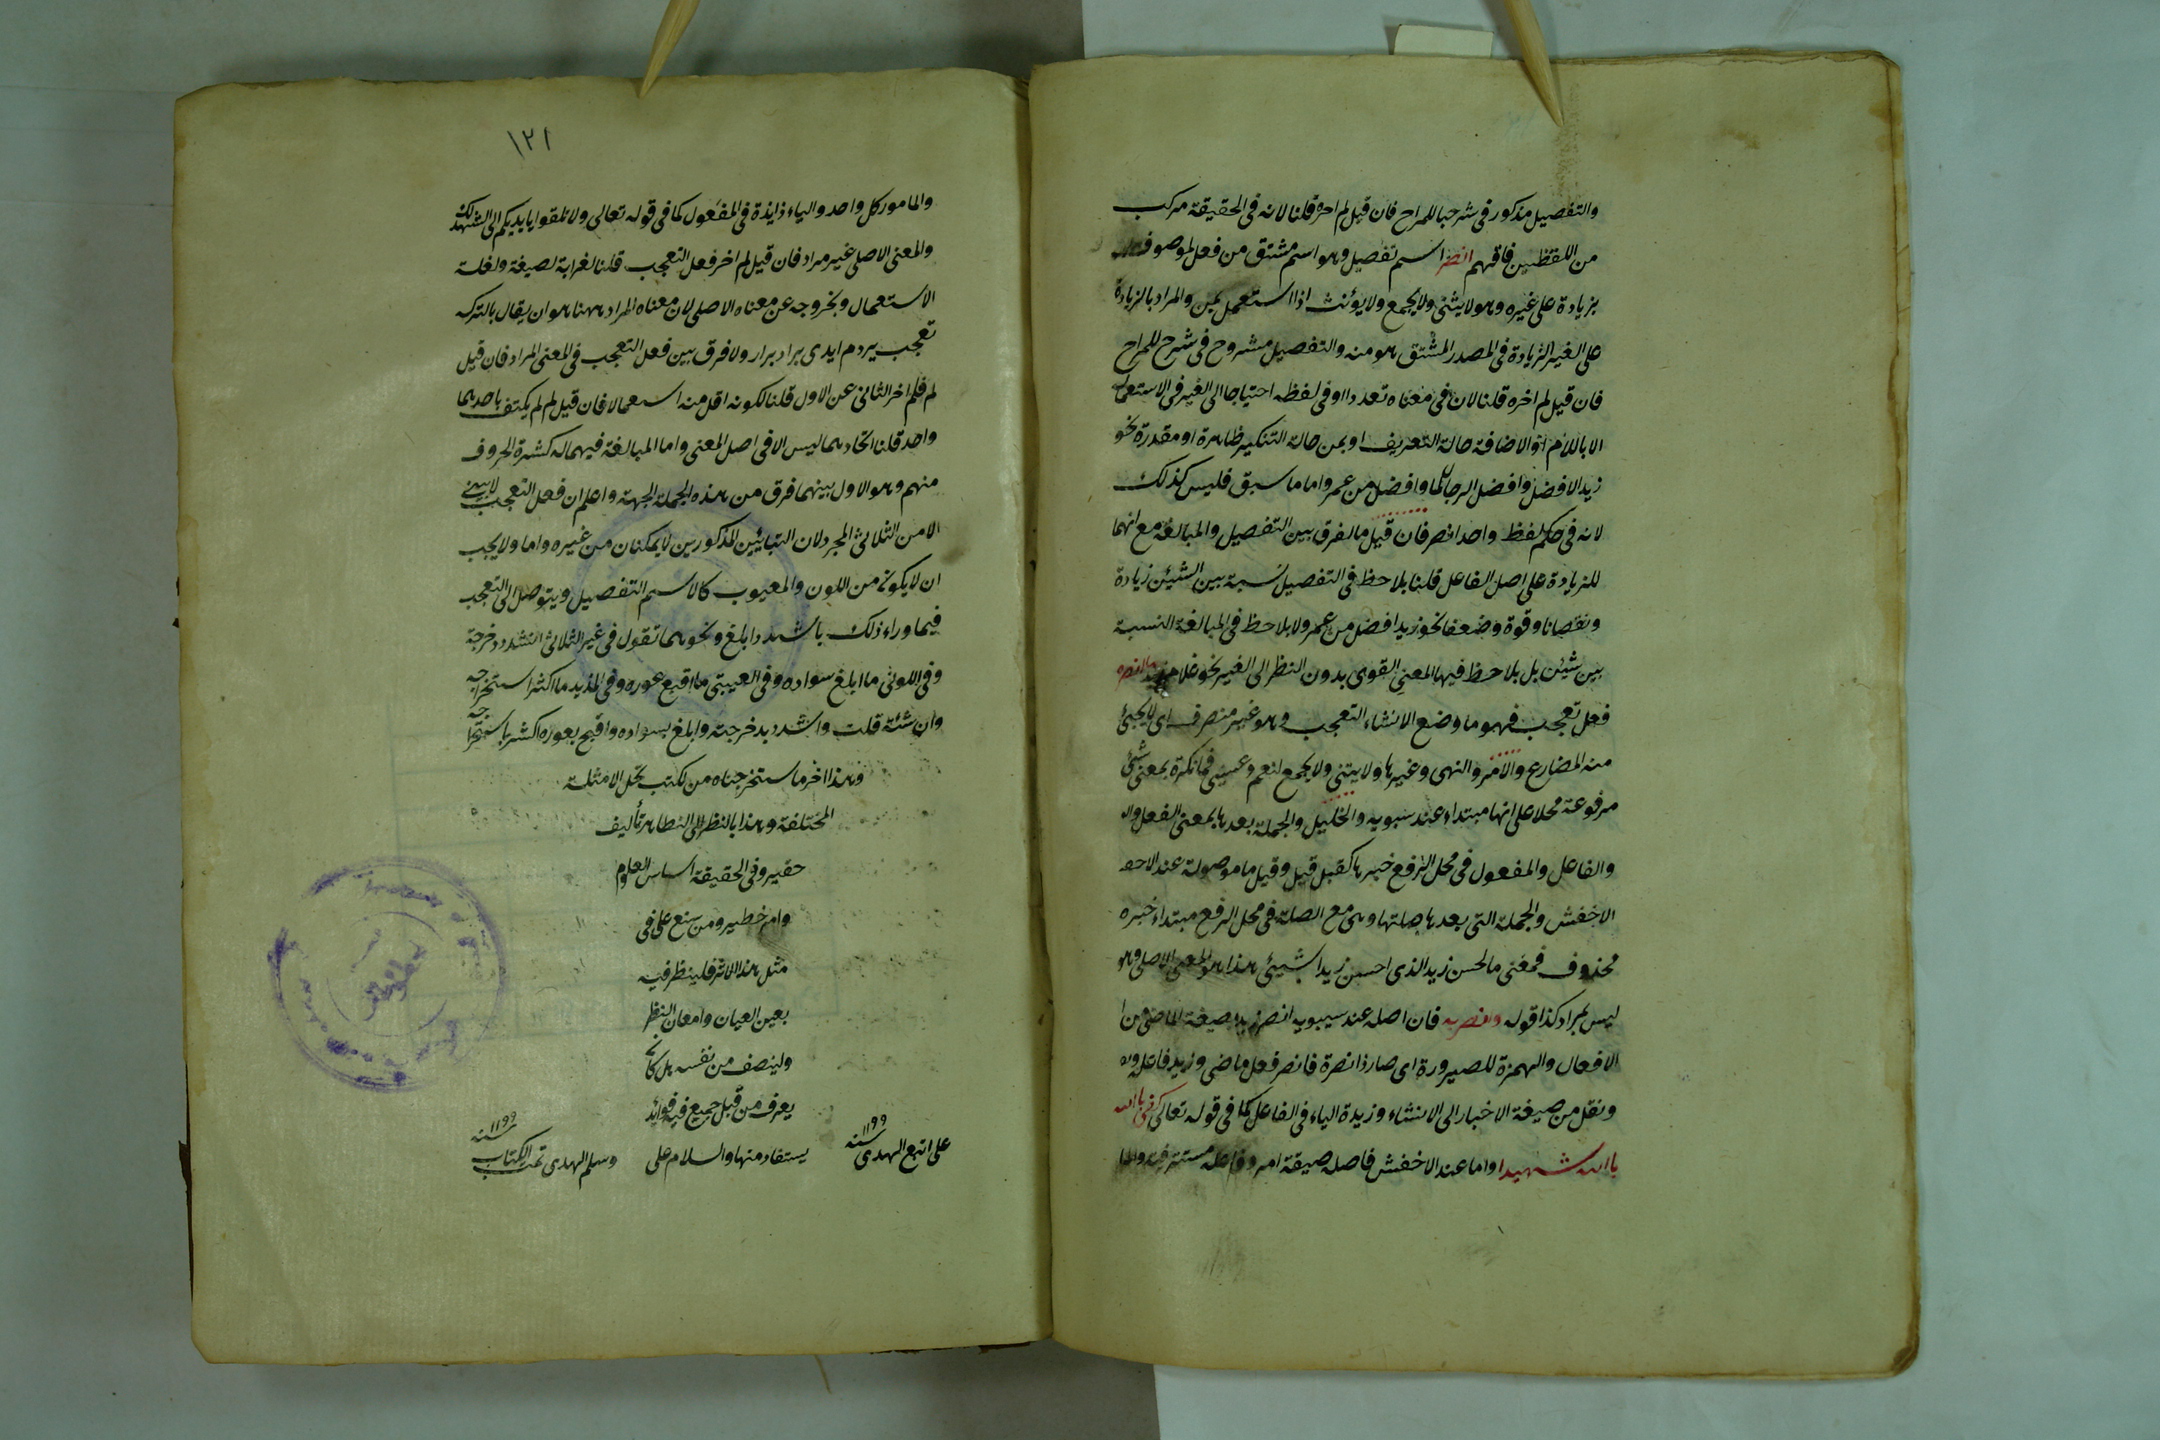 والتفصيل مذكور في شرحنا للمراح فان قيل لم اخره قلنا لانه في الحقيقة مركب
من اللفظين فافهم انصر اسم تفضيل وهو اسم مشتق من فعل لموصوف
بزيادة على غيره وهو لا يثنى ولا يجمع ولا يؤنث اذا استعمل بمن والمراد بالزيادة
على الغير الزيادة في المصدر المشتق هو منه والتفصيل مشروح في شرح للمراح
فان قيل لم اخره قلنا لان في معناه تعددا وفي لفظه احتياجا الى الغير في الاستعمال
الا باللام او الاضافة حالة التعريف او بمن حالة التنكير ظاهرة او مقدرة نحو
زيد الافضل وافضل الرجال وافضل من عمر واما ما سبق فليس كذلك
لانه في حكم لفظ واحد انصر فان قيل ما الفرق بين التفضيل والمبالغة مع انهما
للزيادة على اصل الفاعل قلنا يلاحظ في التفضيل نسبة بين الشيئين زيادة
ونقصانا وقوة وضعفا نحو زيد افضل من عمر ولا يلاحظ في المبالغة النسبة
بين شيئين بل يلاحظ فيها المعنى القوى بدون النظر الى الغير نحو علام ما انصره
فعل تعجب فهو ما وضع الانشاء التعجب وهو غير منصرف اي لا يجئ
منه المضارع والامر والنهي وغيرها ولا يثنى ولا يجمع لنعم وعسى فما نكرة بمعنى شئ
مرفوعة محلا على انها مبتداء عند سبويه والخليل والجملة بعدها بمعنى الفعل وال
والفاعل والمفعول في محل الرفع خبرها كقبل قيل وقيل ما موصولة عند الاخف
الاخفش والجملة التي بعدها صلتها وهي مع الصلة في محل الرفع مبتداء خبره
محذوف فمعنى ما لحسن زيدا الذي احسن زيدا شيئ هذا هو المعنى الاصلي وهو
ليس بمراد كذا قوله وانصر به فان اصله عند سيبويه انصر زيد صيغة الماضي من ا
الافعال والهمزة للصيرورة اي صار ذا نصرة فانصر فعل ماضي وزيد فاعله
ونقل من صيغة الاخبار الى الانشاء وزيدة الياء في الفاعل كما في قوله تعالى كفى باالله
باالله شهيدا واما عند الاخفش فاصله صيغة امر وفاعله مستتر فيه والما
١٢١
والمامور كل واحد والياء زائدة في المفعول كما في قوله تعالى ولا تلقوا بايديكم الى التهلكة
والمعنى الاصلي غير مراد فان قيل لم اخر فعل التعجب قلنا لغرابة لصيغة ولغلت
الاستعمال وبخروجه عن معناه الاصلي لان معناه المراد ههنا هو ان يقال بالتركه
تعجب يردم ايدى يراد برار ولا فرق بين فعل التعجب في المعنى المراد فان قيل
لم فلم اخر الثاني عن الاول قلنا لكونه اقل منه استعمالا فان قيل لم لم يكتف باحدهما
واحد قلنا اتحادهما ليس الا في اصل المعنى واما المبالغة فيهما له كثرة الحروف
منهم وهو الاول بينهما فرق من هذه الجملة الجهة واعلم ان فعل التعجب لا يبنى
الا من الثلاثى المجرد لان البنائين المذكورين لا يمكنان من غيره واما ولا يجب
ان لا يكون من اللون والمعيوب كالاسم التفضيل ويتوصل الى التعجب
فيما وراء ذلك باشد وابلغ ونحوهما تقول في غير الثلاثى التشدد دخرجة
وفي اللونى ما ابلغ سواده وفي العيبتى ما اقبح عوره وفي المزيد ما اكثر استخراجه
وان شئة قلت واشدد بدخرجته وابلغ بسواده واقبح بعوره اكثر باستخراجه
وهذا اخر ما استخرجناه من لكتب بحل الامثلة
المختلفة وهذا بالنظر الى النظاهر تأليف
حقير وفي الحقيقة اساس العلوم
وامر خطير ومن سنع على في
مثل هذا الاثر فلينظر فيه
بعين العيان وامعان النظر
ولينصف من نفسه هل كا
يعرف من قبل جميع فيه فوائد
يستفاد منها والسلام على
على اتبع الهدى سنه ١١٩٩
وسلم الهدى تمت الكتاب سنه ١١٩٩